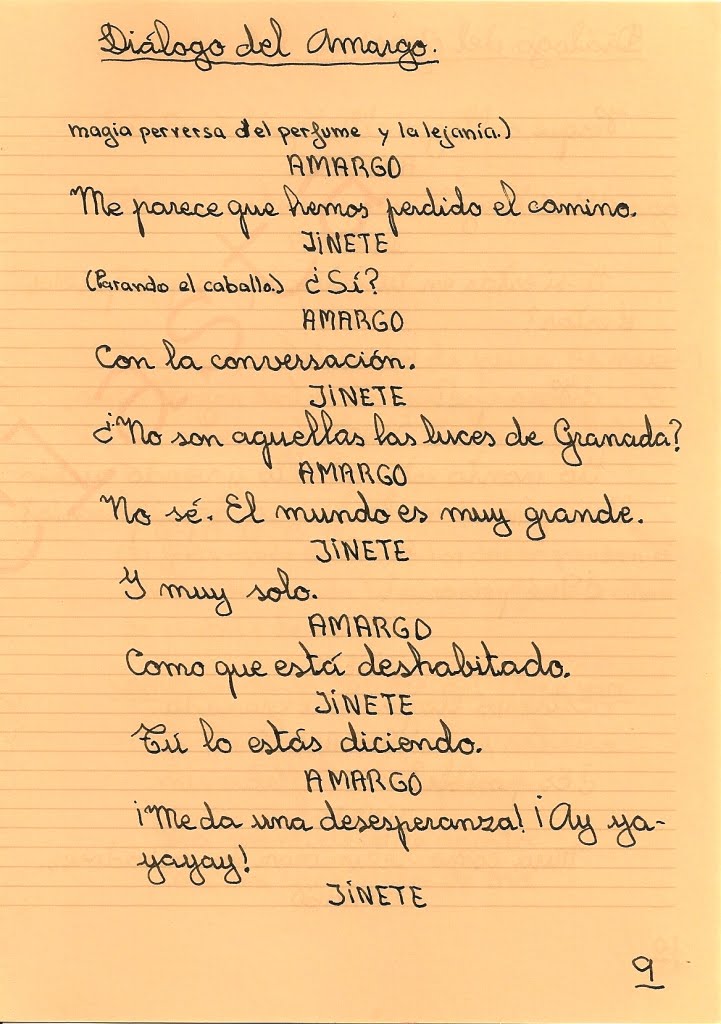 Diálogo del Amargo.
magia perversa del perfume y la lejanía.)
AMARGO
Me parece que hemos perdido el camino.
JINETE
(Parando el caballo.) ¿Sí?
AMARGO
Con la conversación.
JINETE
¿No son aquellas las luces de Granada?
AMARGO
No sé. El mundo es muy grande.
JINETE
Y muy solo.
AMARGO
Como que está deshabitado.
JINETE
Tú lo estás diciendo.
AMARGO
¡Me da una desesperanza! ¡Ay ya-
yayay!
JINETE
9